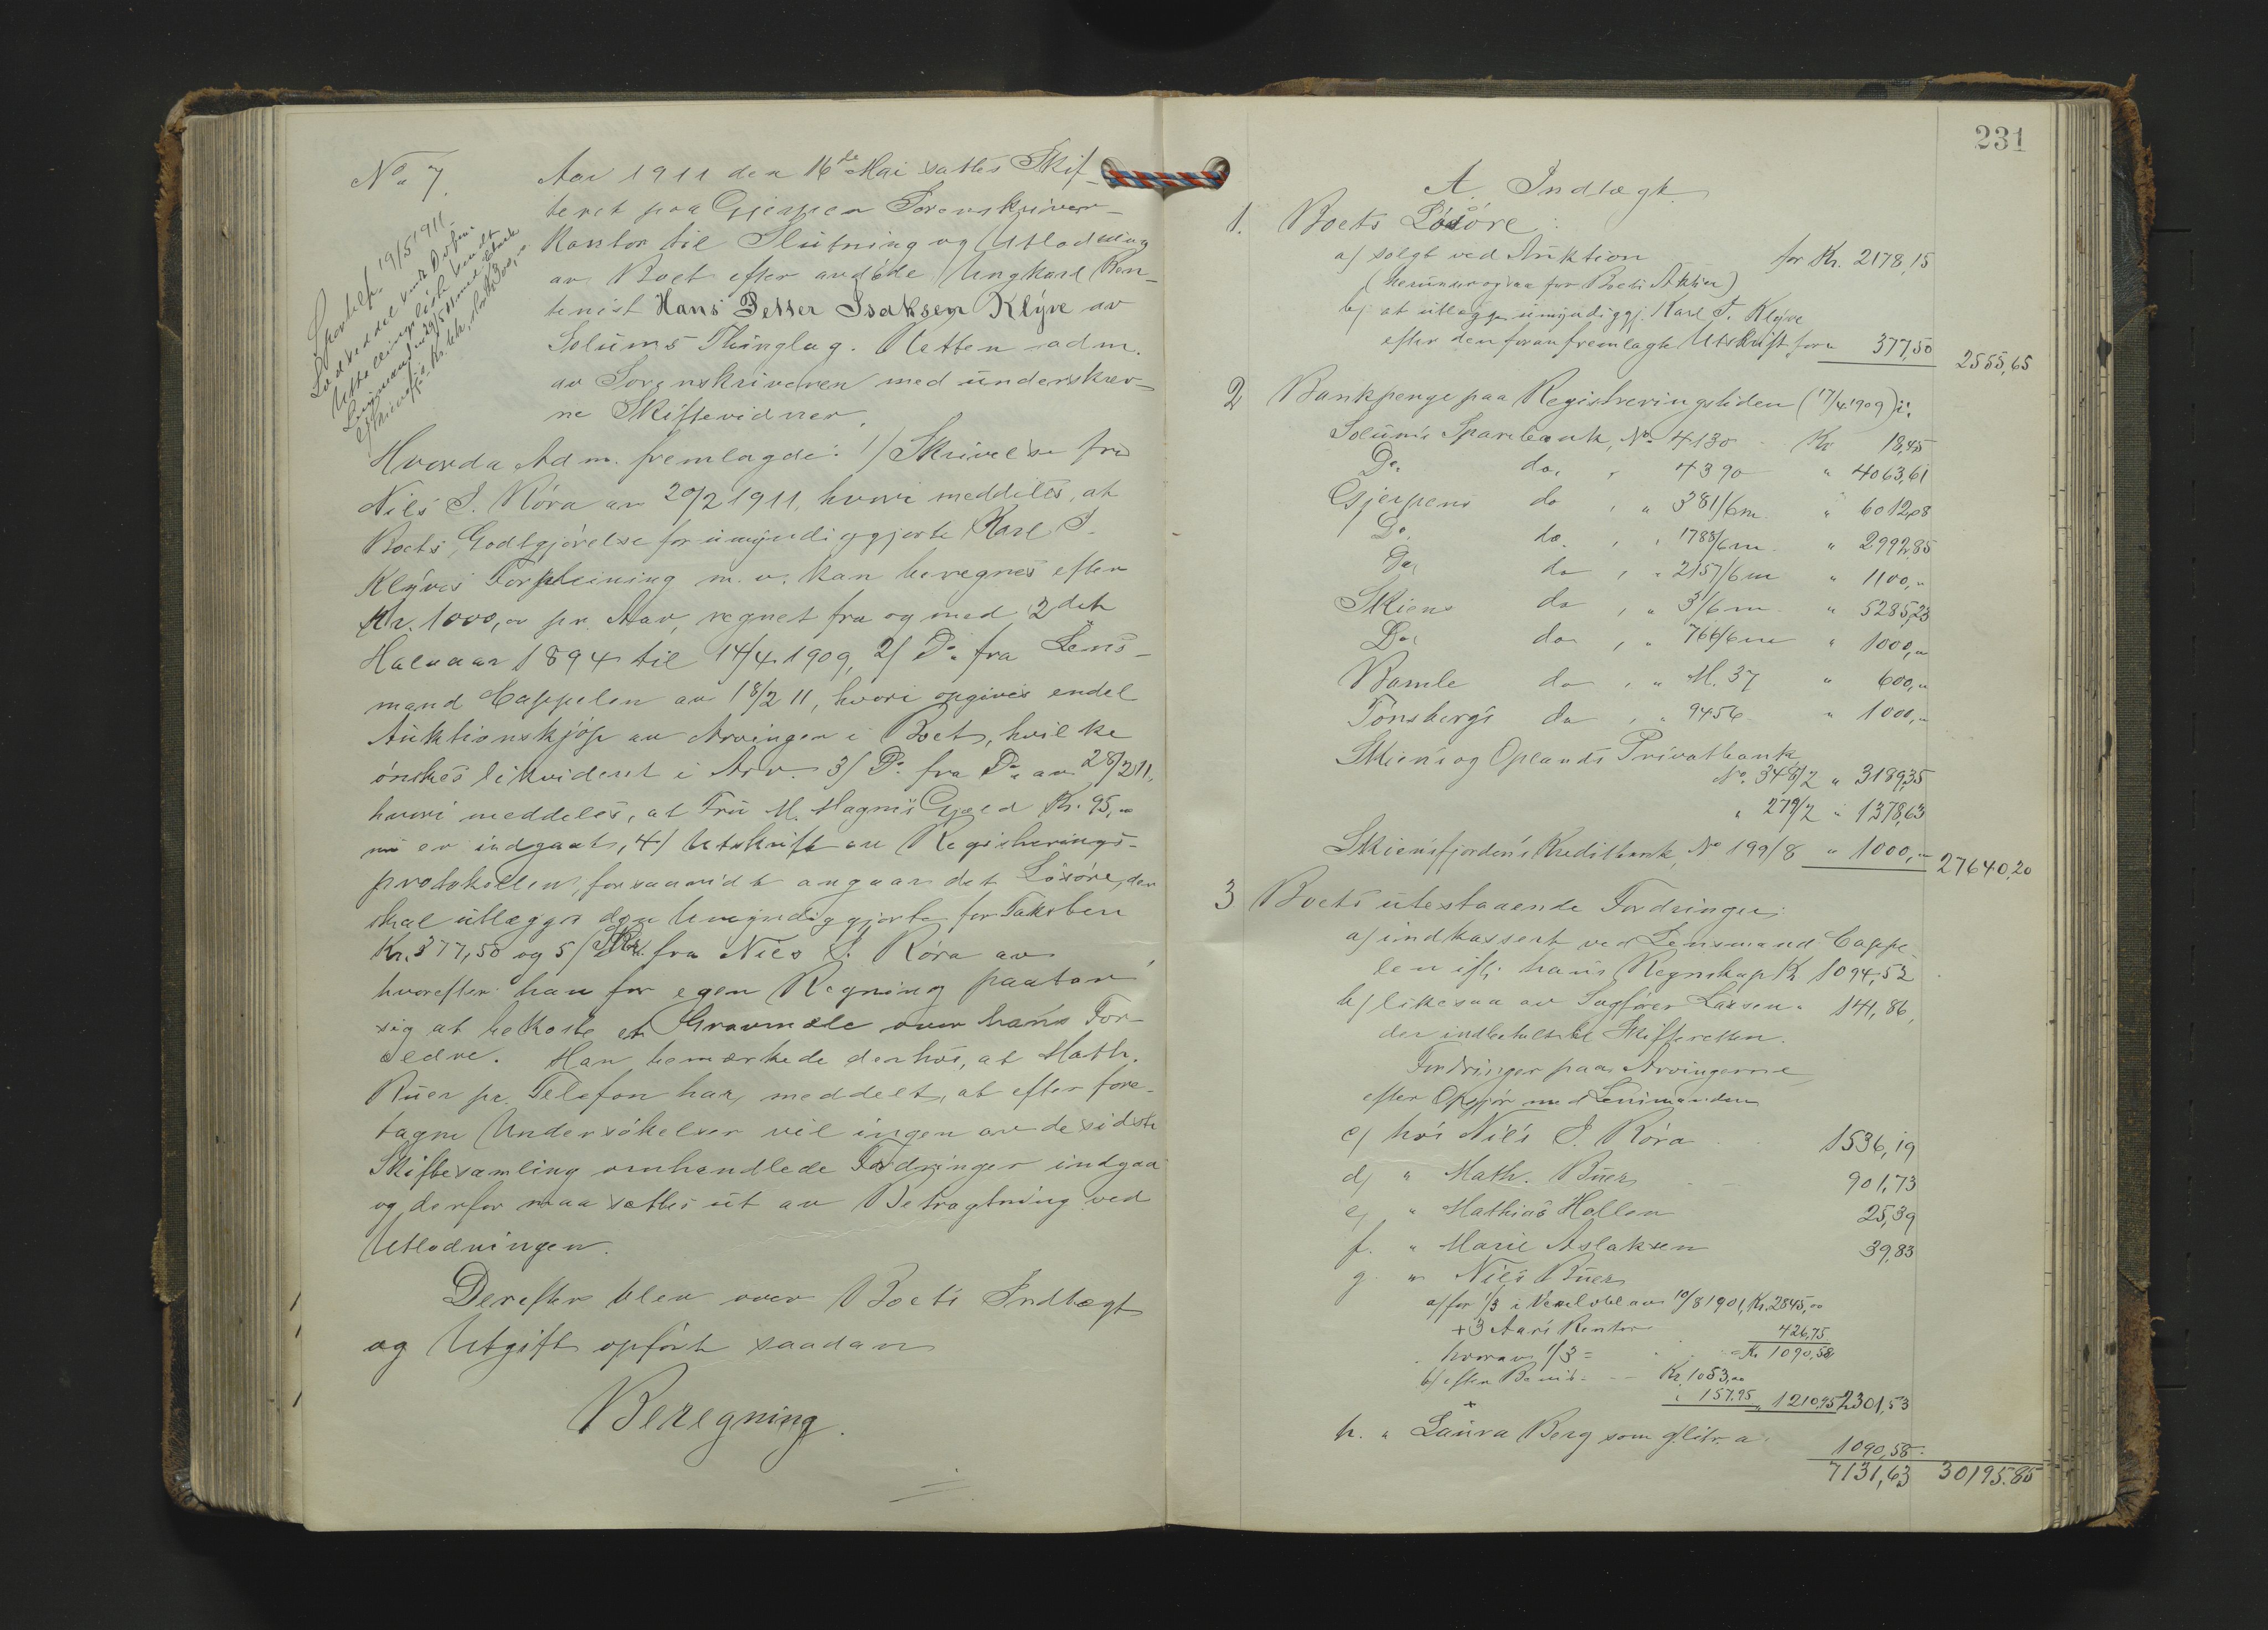 No 7.
Sportelf. 19/5 1911
Aar 1911 den 16de Mai sattes Skif-
teret paa Gjerpen Sorenskriver-
kontor til Slutning og Utlodning
av Boet efter avdöde Ungkarl Ren-
tenist Hans Petter Isaksen Klýve av
Solums Thinglag. Retten adm.
av Sorenskriveren med underskrev-
ne Skiftevidner.
Hvorda Adm. fremlagde: 1/ Skrivelse fra
Nils I. Röra av 20/2 1911, hvori meddeles, at
Boets Godtgjörelse for umyndiggjorte Karl I.
Klýves Forpleining m. v. kan beregnes efter
Kr. 1000,00 pr. Aar, regnet fra og med 2det
Halvaar 1894 til 14/4 1909, 2/ Do fra Lens-
mand Cappelen av 18/2 11, hvori opgives endel
Auktionskjöp av Arvinger i Boet, hvilke
önskes likvidert i Arv. 3/ Do fra Do av 28/2 11,
hvori meddeles, at Fru M. Magnus Gjæld Kr. 95,00
nu er indgaat, 4/ Utskrift av Registrerings-
protokollen, forsaavidt angaar det Lösöre, der
skal utlægges den Umyndiggjorte for Taksten
Kr. 377,50 og 5/ Skr. fra Nils I. Röra av
hvorefter han for egen Regning paatar
sig at bekoste et Gravmæle over hans For-
ældre. Han bemærkede derhos, at Math.
Buer pr. Telefon har meddelt, at efter fore-
tagne Undersökelser vil ingen av de sidste
Skiftesamling omhandlede Fordringer indgaa
og derfor maa sættes ut av Betragtning ved
Utlodningen.
Derefter blev over Boets Indtægt
og Utgift opfört saadan
Beregning.
231
A. Indtægt.
1. Boets Lösöre:
a/ solgt ved Auktion for Kr. 2178,15
(herunder ogsaa for Boets Aktier)
b/ at utlægge umyndiggj. Karl I. Klýve
efter den foran fremlagte Utskrift for " 377,50 2555,65
2 Bankpenge paa Registreringstiden (17/4 1909) i:
Solums Sparebank, No 4130 Kr 18,45
Do do, " 4390 " 4063,61
Gjerpens do , " 381/6m " 6012,08
Do. do. , " 1788/6m. " 2992,85
Do, do , " 2157/6m " 1100,"
Skiens do , " 3/6m. " 5285,23
Do, do , " 766/6m " 1000,"
Bamle do , " M. 37 " 600,"
Tönsbergs do , " 9456 " 1000,"
Skiens og Oplands Privatbank,
No. 348/2 " 3189,35
" 279/2 " 1378,63
Skiensfjordens Kreditbank, No 199/8 " 1000,- 27640,20
3 Boets utestaaende Fordringer:
a/ indkassert ved Lensmand Cappe-
len iflg. hans Regnskap Kr 1094,52
b/ likesaa av Sagförer Larsen " 141,86,
der indbetalt til Skifteretten.
Fordringer paa Arvingerne
efter Opgjör med Lensmanden
c/ hos Nils I. Röra 1536,19
d/ " Math. Buer 901,73
e/ " Mathias Hollen 25,39
f. " Marie Aslaksen 39,83
g. " Nils Buer
a/ for 1/3 i Vexelobl. av 10/8 1901, Kr. 2845,00
+ 3 Aars Renter 426,75
hvorav 1/3 = Kr 1090,58
b/ efter Bevis - Kr. 1053,00
" 157,95 " 1210,95 2301,53
h. " Laura Berg som g. litr. a. 1090,58.
7131,63 30195.85